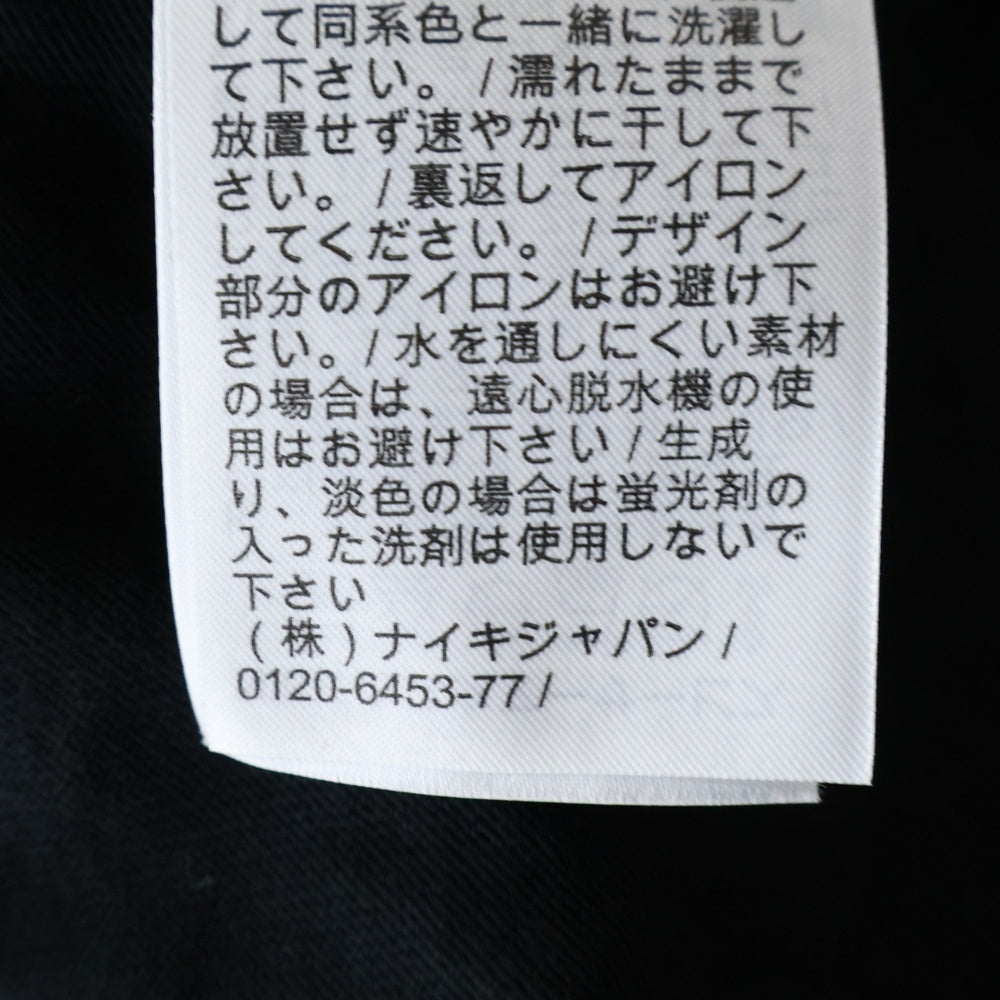 して同系色と一緒に洗濯し
て下さい。/濡れたままで
放置せず速やかに干して下
さい。/裏返してアイロン
してください。/デザイン
部分のアイロンはお避け下
さい。/水を通しにくい素材
の場合は、遠心脱水機の使
用はお避け下さい/生成
り、淡色の場合は蛍光剤の
入った洗剤は使用しないで
下さい
(株)ナイキジャパン/
0120-6453-77/